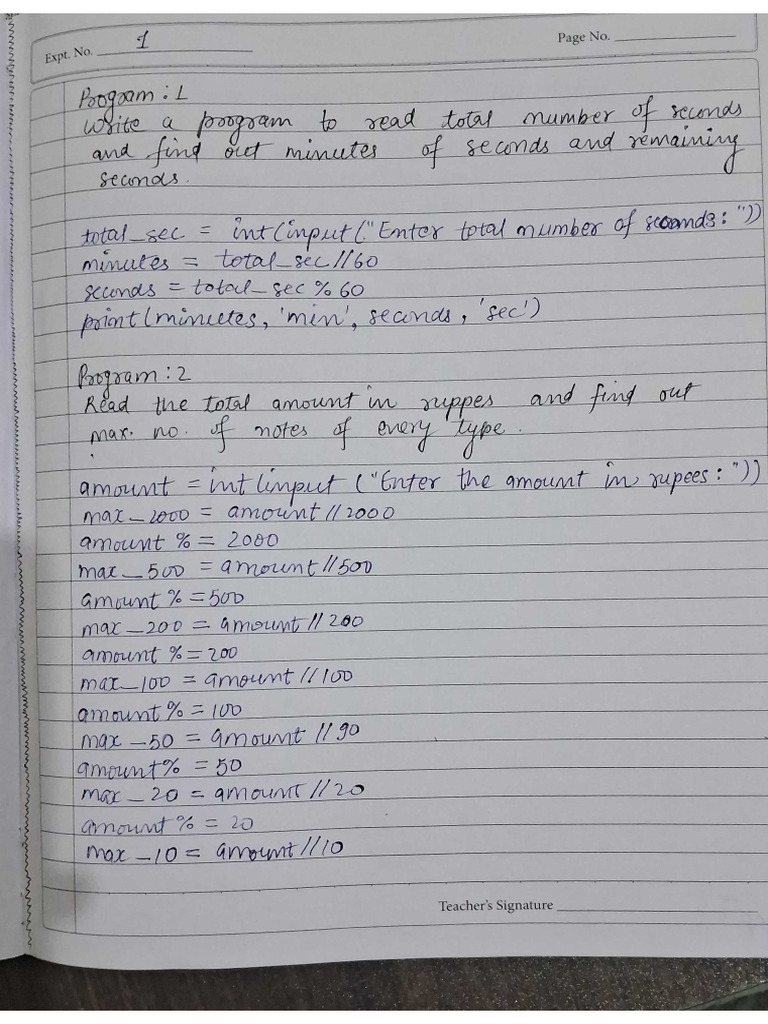 Expt. No. 1
Page No.
Program : 1
Write a program to read total number of seconds
and find out minutes of seconds and remaining
seconds.
total_sec = int(input("Enter total number of seconds: "))
minutes = total_sec//60
seconds = total_sec % 60
print(minutes, 'min', seconds, 'sec')
Program : 2
Read the total amount in ruppes and find out
max. no. of notes of every type.
amount = int(input ("Enter the amount in rupees : "))
max_2000 = amount//2000
amount % = 2000
max_500 = amount//500
amount % = 500
max_200 = amount//200
amount % = 200
max_100 = amount//100
amount % = 100
max_50 = amount//90
amount % = 50
max_20 = amount//20
amount % = 20
max_10 = amount//10
Teacher's Signature